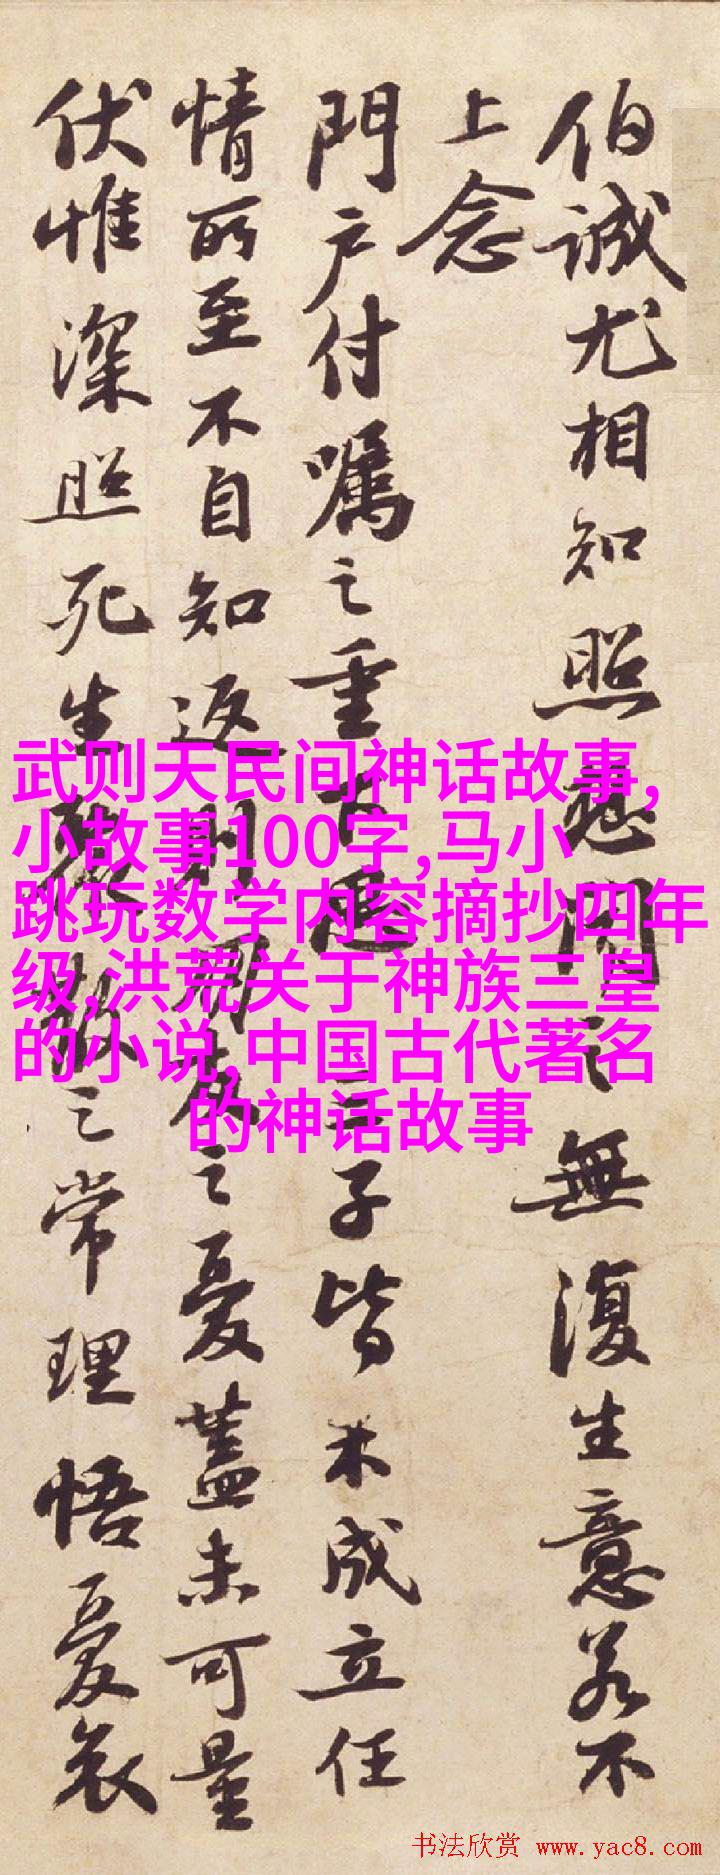 伯誠尤相知照想聞之無復生意若不
上念
門戶付囑之重下思三子皆未成立任
情所至不自知返則朋友之憂蓋未可量
伏惟深照死生聚散之常理悟憂哀
武则天民间神话故事,
小故事100字,马小
跳玩数学内容摘抄四年
级,洪荒关于神族三皇
的小说,中国古代著名
的神话故事
书法欣赏 www.yac8.com